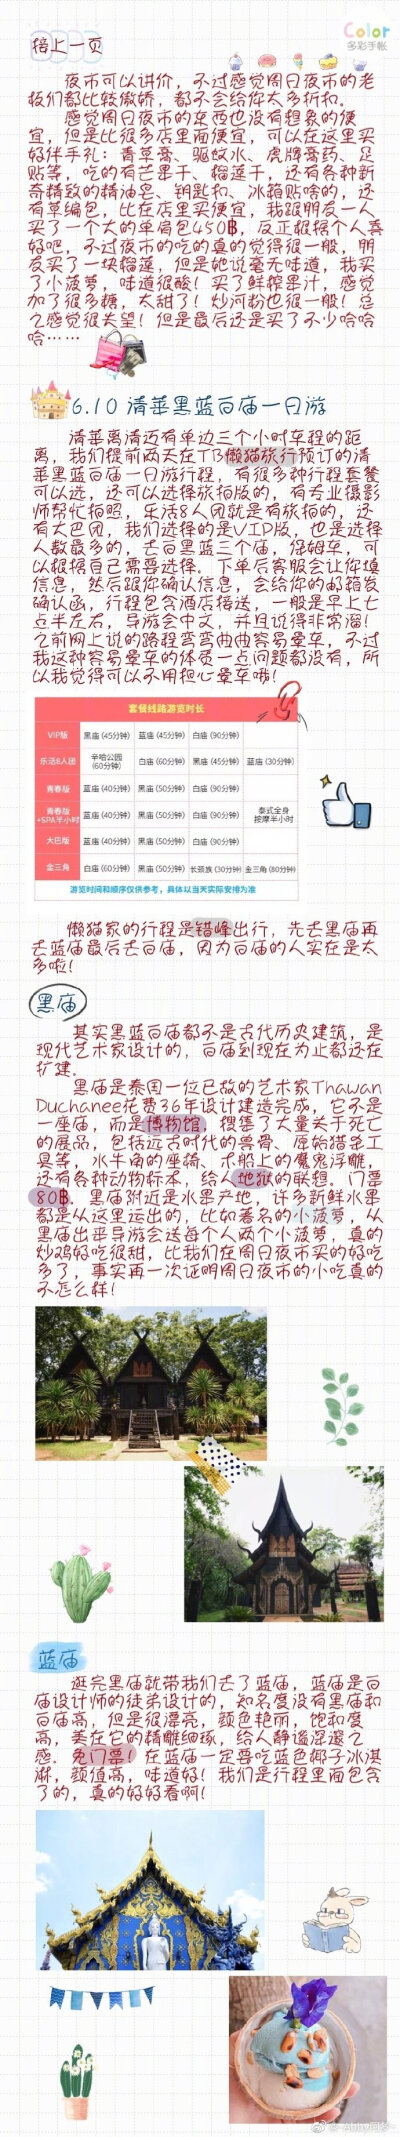 Color
多彩手帐
接上一页
夜市可以讲价，不过感觉周日夜市的老
板们都比较傲娇，都不会给你太多折扣。
感觉周日夜市的东西也没有想象的便
宜，但是比很多店里面便宜，可以在这里买
好伴手礼：青草膏、驱蚊水、虎牌膏药、足
贴等，吃的有芒果干、榴莲干，还有各种新
奇精致的精油皂、钥匙扣、冰箱贴啥的，还
有草编包，比在店里买便宜，我跟朋友一人
买了一个大的单肩包450฿，反正根据个人喜
好吧，不过夜市的吃的真的觉得很一般，朋
友买了一块榴莲，但是她说毫无味道，我买
了小菠萝，味道很酸！买了鲜榨果汁，感觉
加了很多糖，太甜了！炒河粉也很一般！总
之感觉很失望！但是最后还是买了不少哈哈
哈……
6.10 清莱黑蓝白庙一日游
清莱离清迈有单边三个小时车程的距
离，我们提前两天在TB懒猫旅行预订的清
莱黑蓝白庙一日游行程，有很多种行程套餐
可以选，还可以选择旅拍版的，有专业摄影
师帮忙拍照，乐活8人团就是有旅拍的，还
有大巴团，我们选择的是VIP版，也是选择
人数最多的，去白黑蓝三个庙，保姆车，可
以根据自己需要选择。下单后客服会让你填
信息，然后跟你确认信息，会给你的邮箱发
确认函，行程包含酒店接送，一般是早上七
点半左右，导游会中文，并且说得非常溜！
之前网上说的路程弯弯曲曲容易晕车，不过
我这种容易晕车的体质一点问题都没有，所
以我觉得可以不用担心晕车哦！
套餐线路游览时长
VIP版 黑庙 (45分钟) 蓝庙 (45分钟) 白庙 (90分钟)
乐活8人团 辛哈公园 (60分钟) 白庙 (60分钟) 黑庙 (45分钟) 蓝庙 (30分钟)
青春版 蓝庙 (40分钟) 黑庙 (50分钟) 白庙 (90分钟)
青春版+SPA半小时 蓝庙 (40分钟) 黑庙 (50分钟) 白庙 (90分钟) 泰式全身按摩半小时
大巴版 蓝庙 (40分钟) 黑庙 (50分钟) 白庙 (90分钟)
金三角 白庙 (60分钟) 黑庙 (50分钟) 长颈族 (30分钟) 金三角 (80分钟)
游览时间和顺序仅供参考，具体以当天实际安排为准
懒猫家的行程是错峰出行，先去黑庙再
去蓝庙最后去白庙，因为白庙的人实在是太
多啦！
黑庙
其实黑蓝白庙都不是古代历史建筑，是
现代艺术家设计的，白庙到现在为止都还在
扩建。
黑庙是泰国一位已故的艺术家Thawan
Duchanee花费36年设计建造完成，它不是
一座庙，而是博物馆，搜集了大量关于死亡
的展品，包括远古时代的兽骨、原始猎杀工
具等，水牛角的座椅、木船上的魔鬼浮雕，
还有各种动物标本，给人地狱的联想。门票
80฿。黑庙附近是水果产地，许多新鲜水果
都是从这里运出的，比如著名的小菠萝，从
黑庙出来导游会送每个人两个小菠萝，真的
炒鸡好吃很甜，比我们在周日夜市买的好吃
多了，事实再一次证明周日夜市的小吃真的
不怎么样！
蓝庙
逛完黑庙就带我们去了蓝庙，蓝庙是白
庙设计师的徒弟设计的，知名度没有黑庙和
白庙高，但是很漂亮，颜色艳丽，饱和度
高，美在它的精雕细琢，给人静谧深邃之
感。免门票！在蓝庙一定要吃蓝色椰子冰淇
淋，颜值高，味道好！我们是行程里面包含
了的，真的好好看啊！